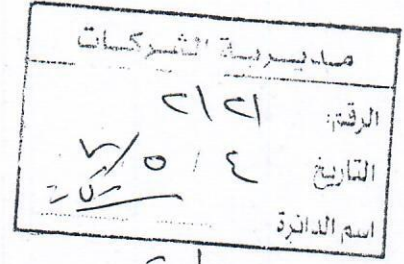 مديرية الشركات
الرقم: ٢١٢١
التاريخ ٤ / ٥ /
اسم الدائرة